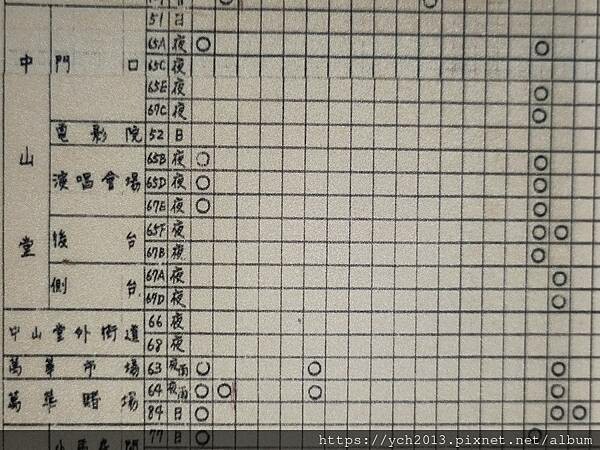 51 日
中山堂
門口 65A 夜 ○ ○
65C 夜
65E 夜 ○
67C 夜 ○
電影院 52 日
演唱會場 65B 夜 ○ ○
65D 夜 ○ ○
67E 夜 ○ ○
後台 65F 夜 ○ ○
67B 夜 ○
側台 67A 夜 ○
67D 夜 ○
中山堂外街道 66 夜
68 夜
萬華市場 63 夜雨 ○ ○ ○
萬華賭場 64 夜雨 ○ ○ ○ ○
84 日 ○ ○ ○
77 日 ○ ○
https://ych2013.pixnet.net/album